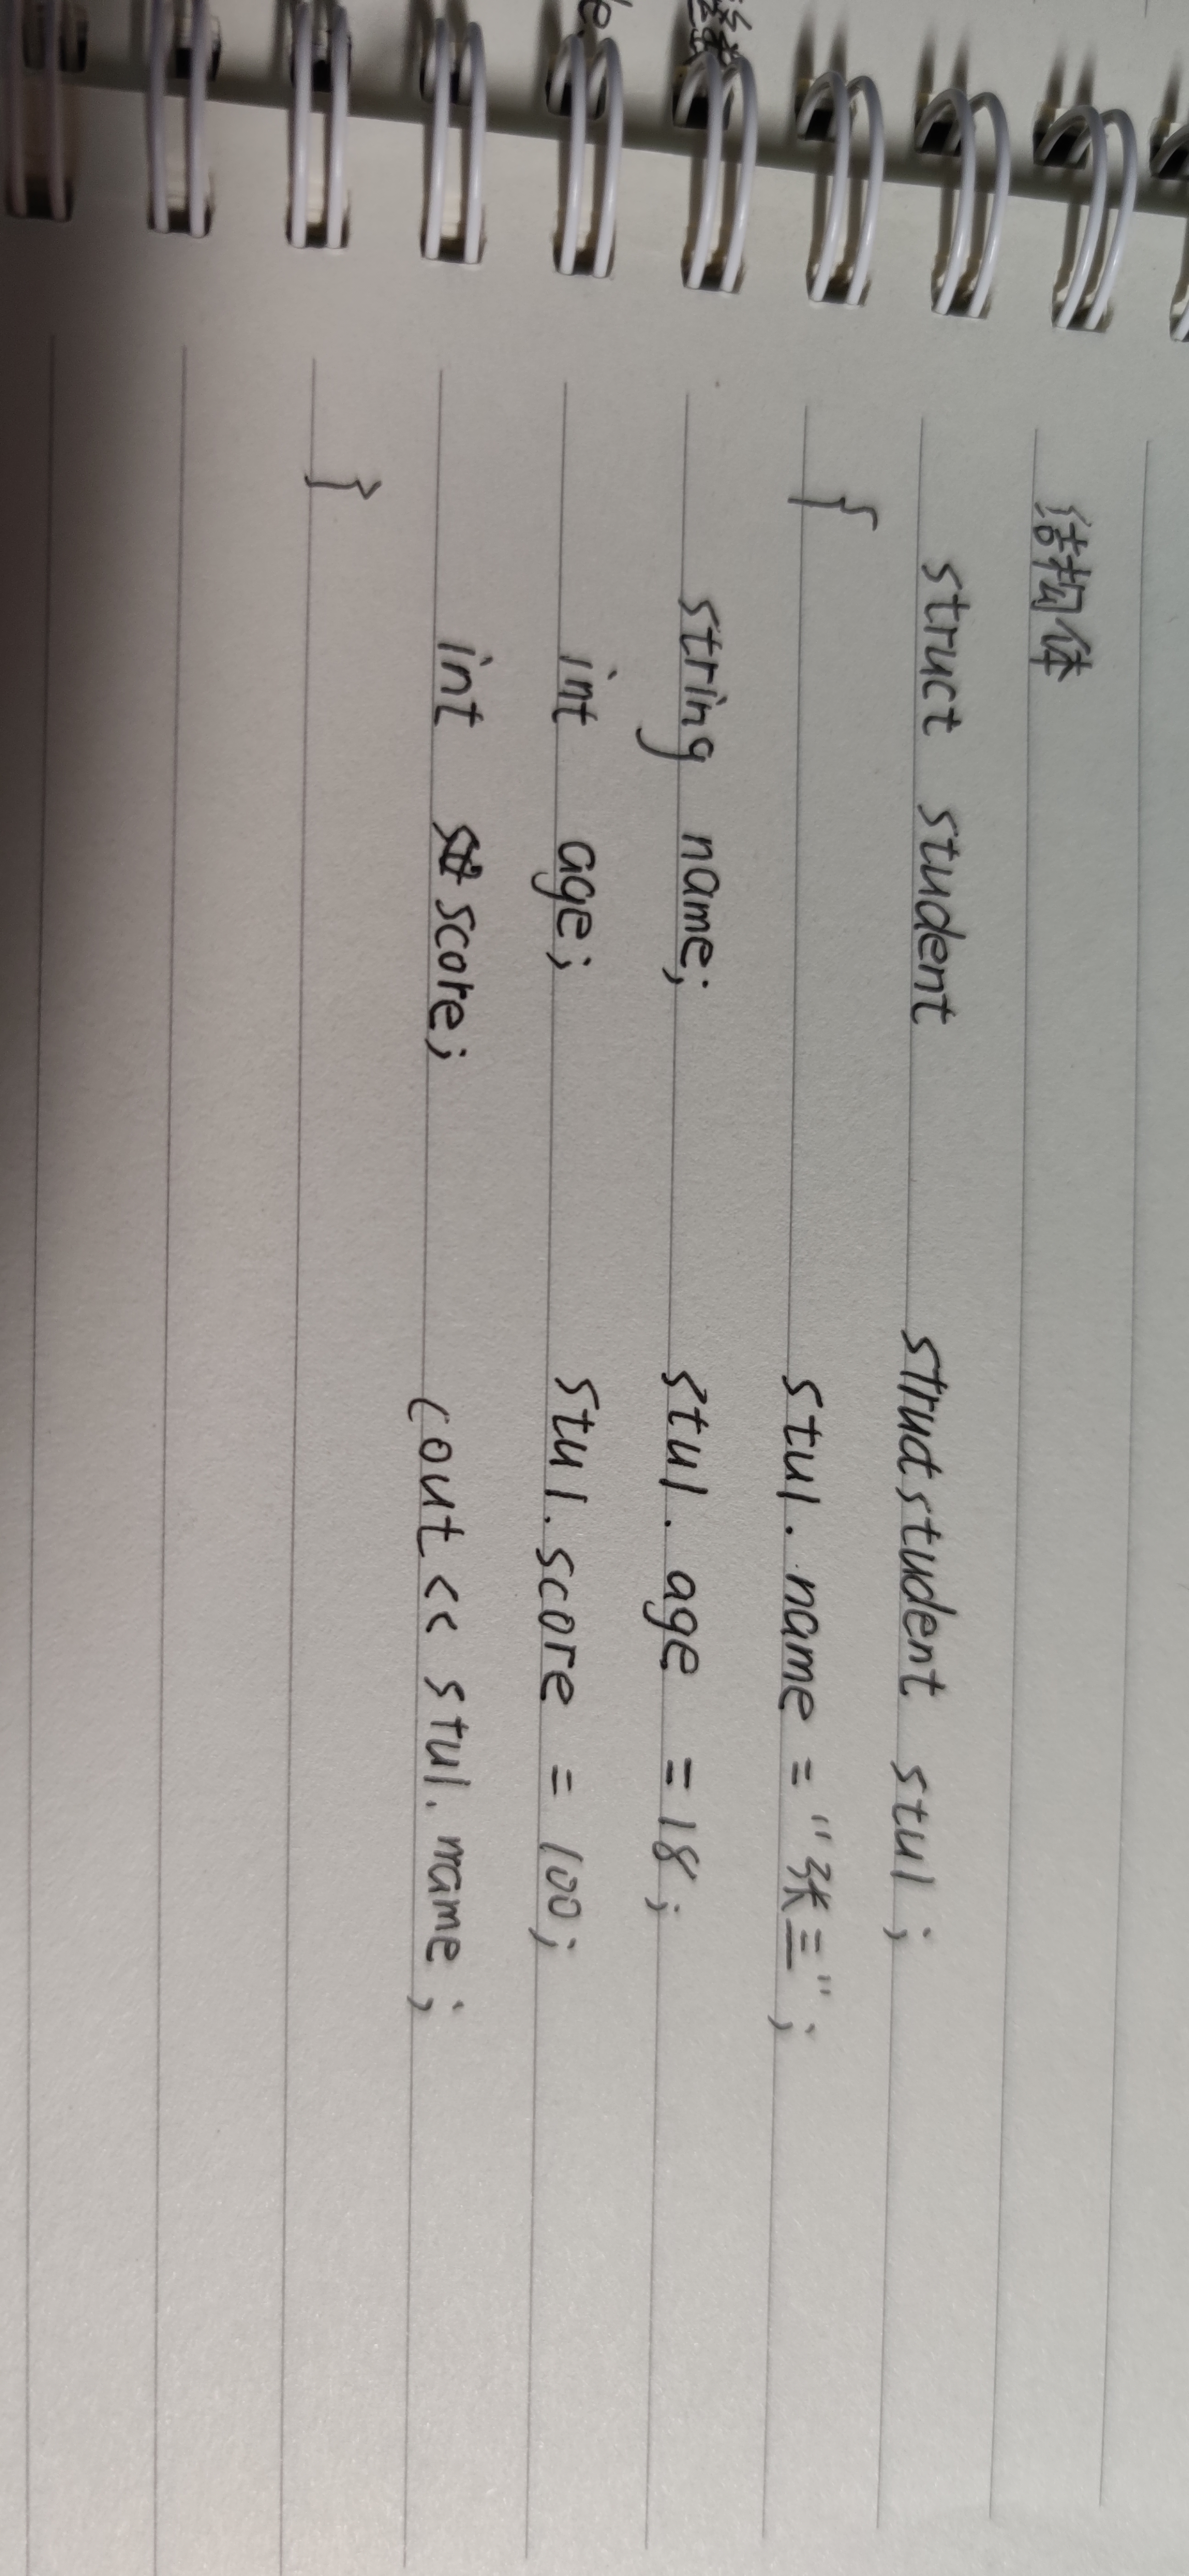 结构体
struct student struct student stu1;
{ stu1.name = "张三";
string name; stu1.age = 18;
int age; stu1.score = 100;
int score; cout << stu1.name;
}